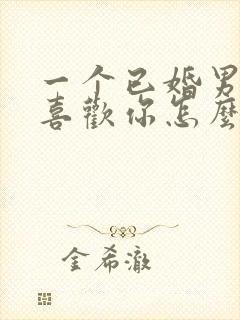 一个已婚男
喜歡你怎麼
金希澈